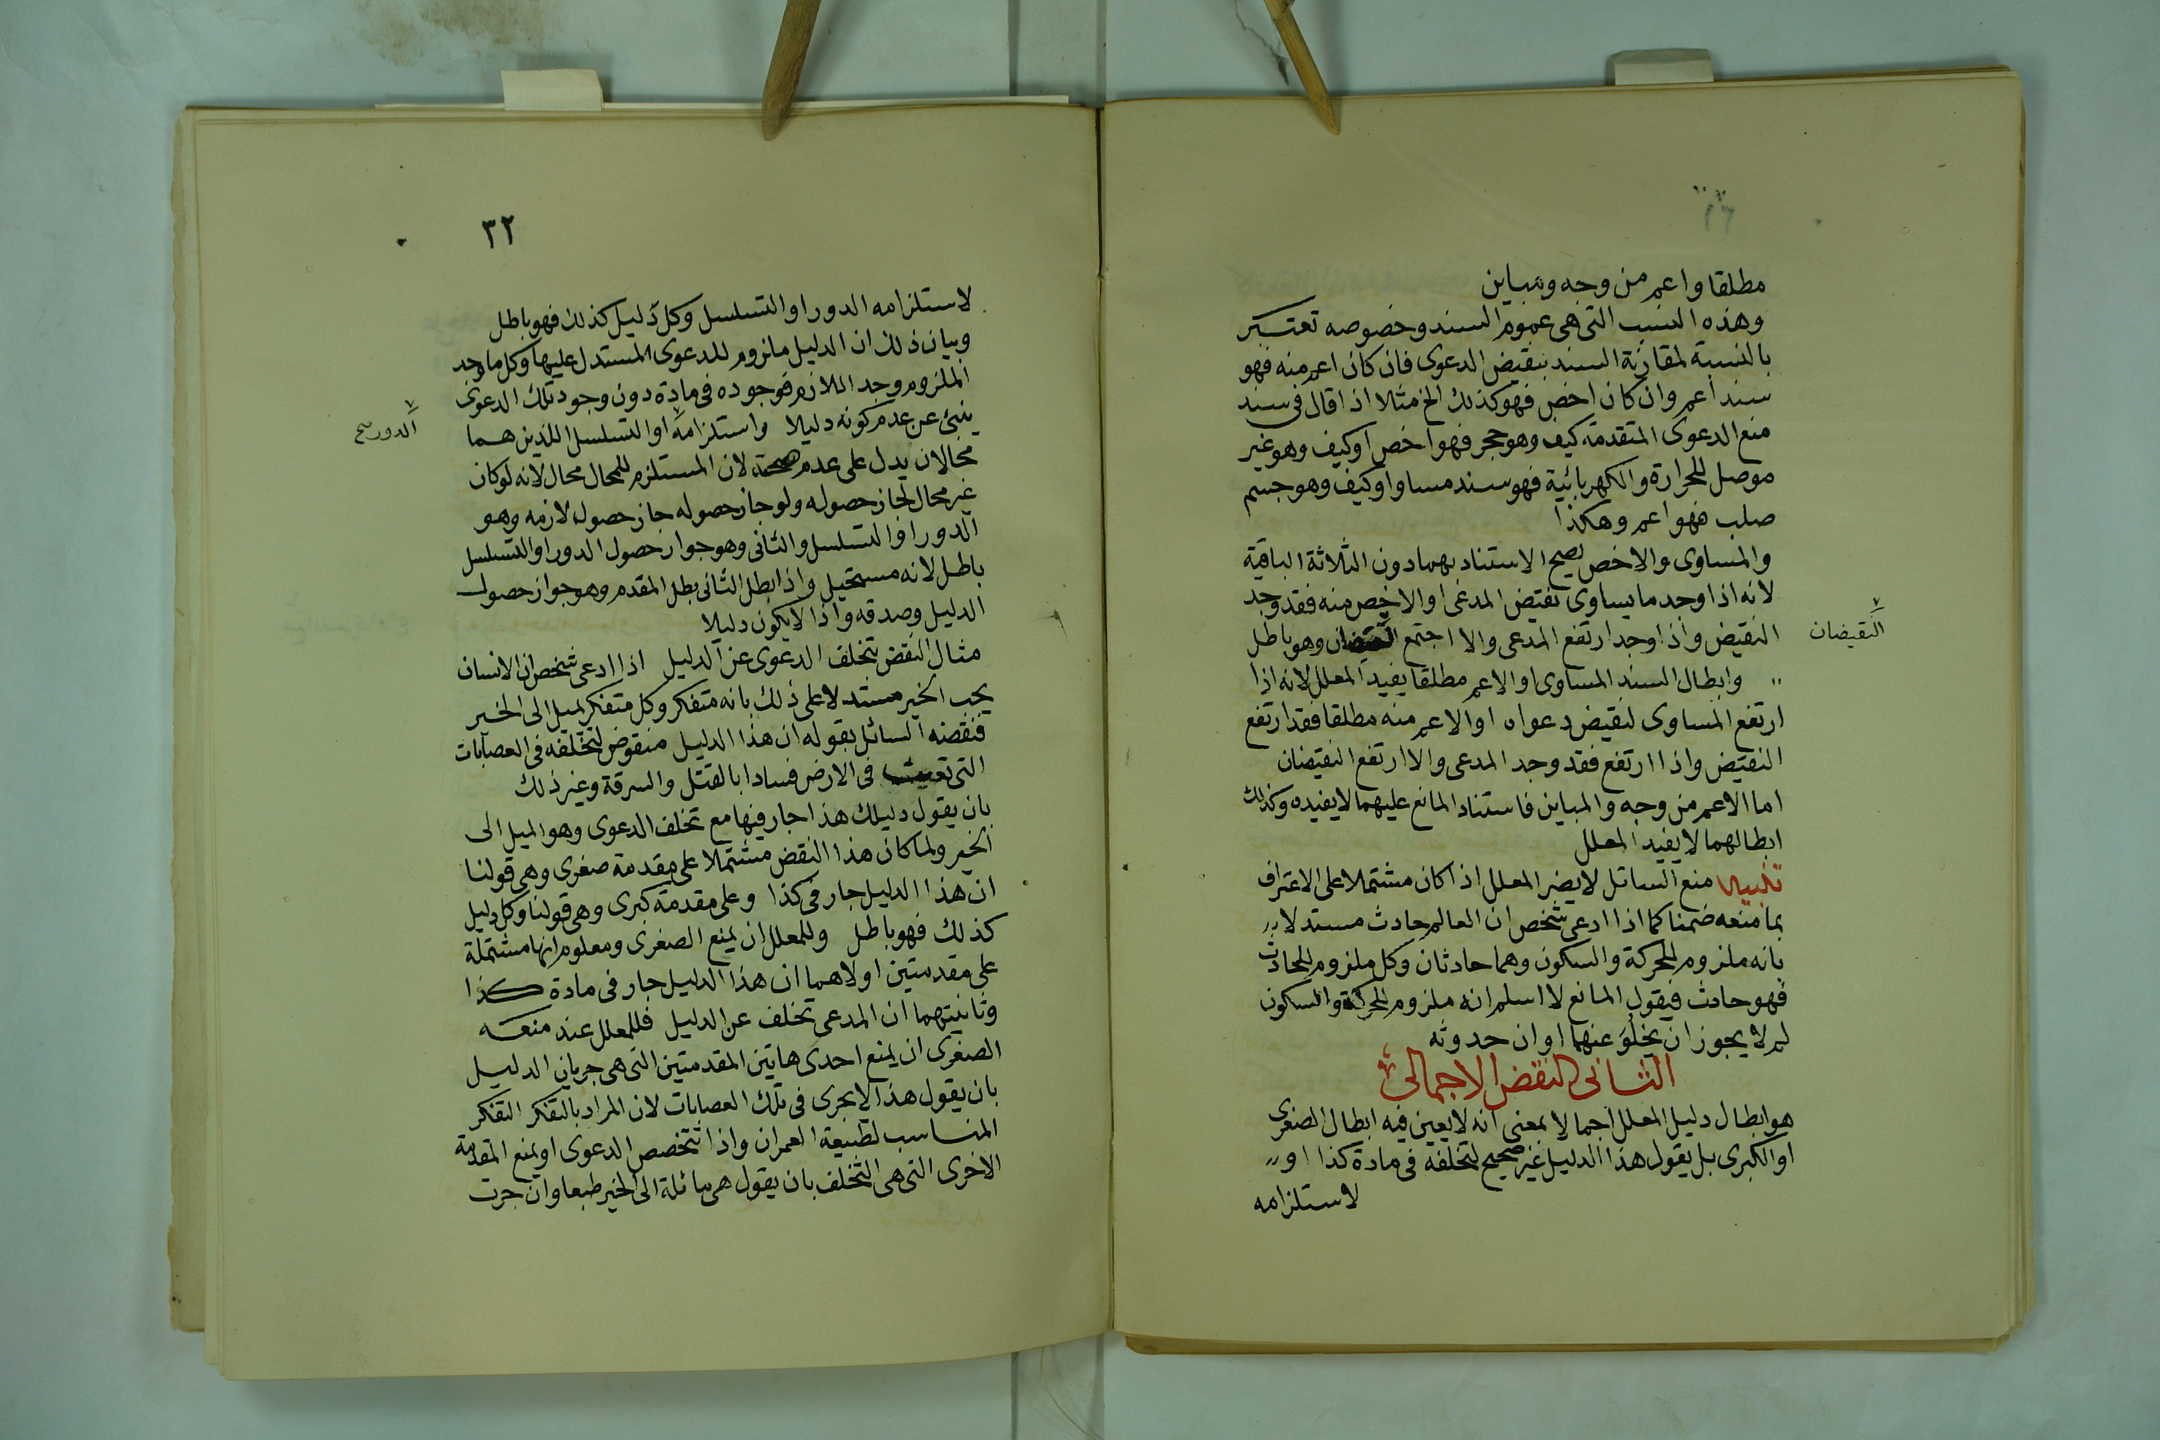 مطلقا واعم من وجه ومباين
وهذه النسب التى هى عموم السند وخصوصه تعتبر
بالنسبة لمقارنة السند بنقيض الدعوى فان كان اعم منه فهو
سند أعم وان كان اخص فهو كذلك الخ مثلا اذا قال فى سند
منع الدعوى المتقدمة كيف وهو حجر فهو اخص او كيف وهو غير
موصل للحرارة والكهربائية فهو سند مساو او كيف وهو جسم
صلب فهو اعم وهكذا
والمساوى والاخص يصح الاستناد بهما دون الثلاثة الباقية
لانه اذا وجد ما يساوى نقيض المدعى او الاخص منه فقد وجد
النقيض واذا وجد ارتفع المدعى والا اجتمع النقيضان وهو باطل
النقيضان
وابطال السند المساوى او الاعم مطلقا يفيد المعلل لانه اذا
ارتفع المساوى لنقيض دعواه او الاعم منه مطلقا فقد ارتفع
النقيض واذا ارتفع فقد وجد المدعى والا ارتفع النقيضان
اما الاعم من وجه والمباين فاستناد المانع عليهما لا يفيده وكذلك
ابطالهما لا يفيد المعلل
تنبيه منع السائل لا يضر المعلل اذا كان مشتملا على الاعتراف
بما منعه ضمنا كما اذا ادعى شخص ان العالم حادث مستدلا
بانه ملزوم للحركة والسكون وهما حادثان وكل ملزوم للحادث
فهو حادث فيقول المانع لا اسلم انه ملزوم للحركة والسكون
لم لا يجوز ان يخلو عنهما اوان حدوثه
الثانى النقض الاجمالى
هو ابطال دليل المعلل اجمالا بمعنى انه لا يعين فيه ابطال الصغرى
او الكبرى بل يقول هذا الدليل غير صحيح لتخلفه فى مادة كذا او
لاستلزامه
٣٢
لاستلزامه الدور او التسلسل وكل دليل كذلك فهو باطل
وبيان ذلك ان الدليل ملزوم للدعوى المستدل عليها وكل ما وجد
الملزوم وجد اللازم فوجوده فى مادة دون وجود تلك الدعوى
ينبئ عن عدم كونه دليلا واستلزامه او التسلسل اللذين هما
الدور صح
محالان يدل على عدم صحته لان المستلزم للمحال محال لانه لو كان
غير محال لجاز حصوله ولو جاز حصوله جاز حصول لازمه وهو
الدور او التسلسل والثانى وهو جواز حصول الدور او التسلسل
باطل لانه مستحيل واذا بطل الثانى بطل المقدم وهو جواز حصول
الدليل وصدقه واذا لا يكون دليلا
مثال النقض بتخلف الدعوى عن الدليل اذا ادعى شخص ان الانسان
يحب الخير مستدلا على ذلك بانه متفكر وكل متفكر يميل الى الخير
فنقضه السائل بقوله ان هذا الدليل منقوض لتخلفه فى العصابات
التى تعيث فى الارض فسادا بالقتل والسرقة وغير ذلك
بان يقول دليلك هذا جار فيها مع تخلف الدعوى وهو الميل الى
الخير ولما كان هذا النقض مشتملا على مقدمة صغرى وهى قولنا
ان هذا الدليل جار فى كذا وعلى مقدمة كبرى وهى قولنا وكل دليل
كذلك فهو باطل وللمعلل ان يمنع الصغرى ومعلوم انها مشتملة
على مقدمتين اولاهما ان هذا الدليل جار فى مادة كذا
وثانيتهما ان المدعى تخلف عن الدليل فللمعلل عند منعه
الصغرى ان يمنع احدى هاتين المقدمتين التى هى جريان الدليل
بان يقول هذا لا يجرى فى تلك العصابات لان المراد بالتفكر التفكر
المناسب لطبيعة العمران واذا تتخصص الدعوى او يمنع المقدمة
الاخرى التى هى التخلف بان يقول هى مائلة الى الخير طبعا وان جرت